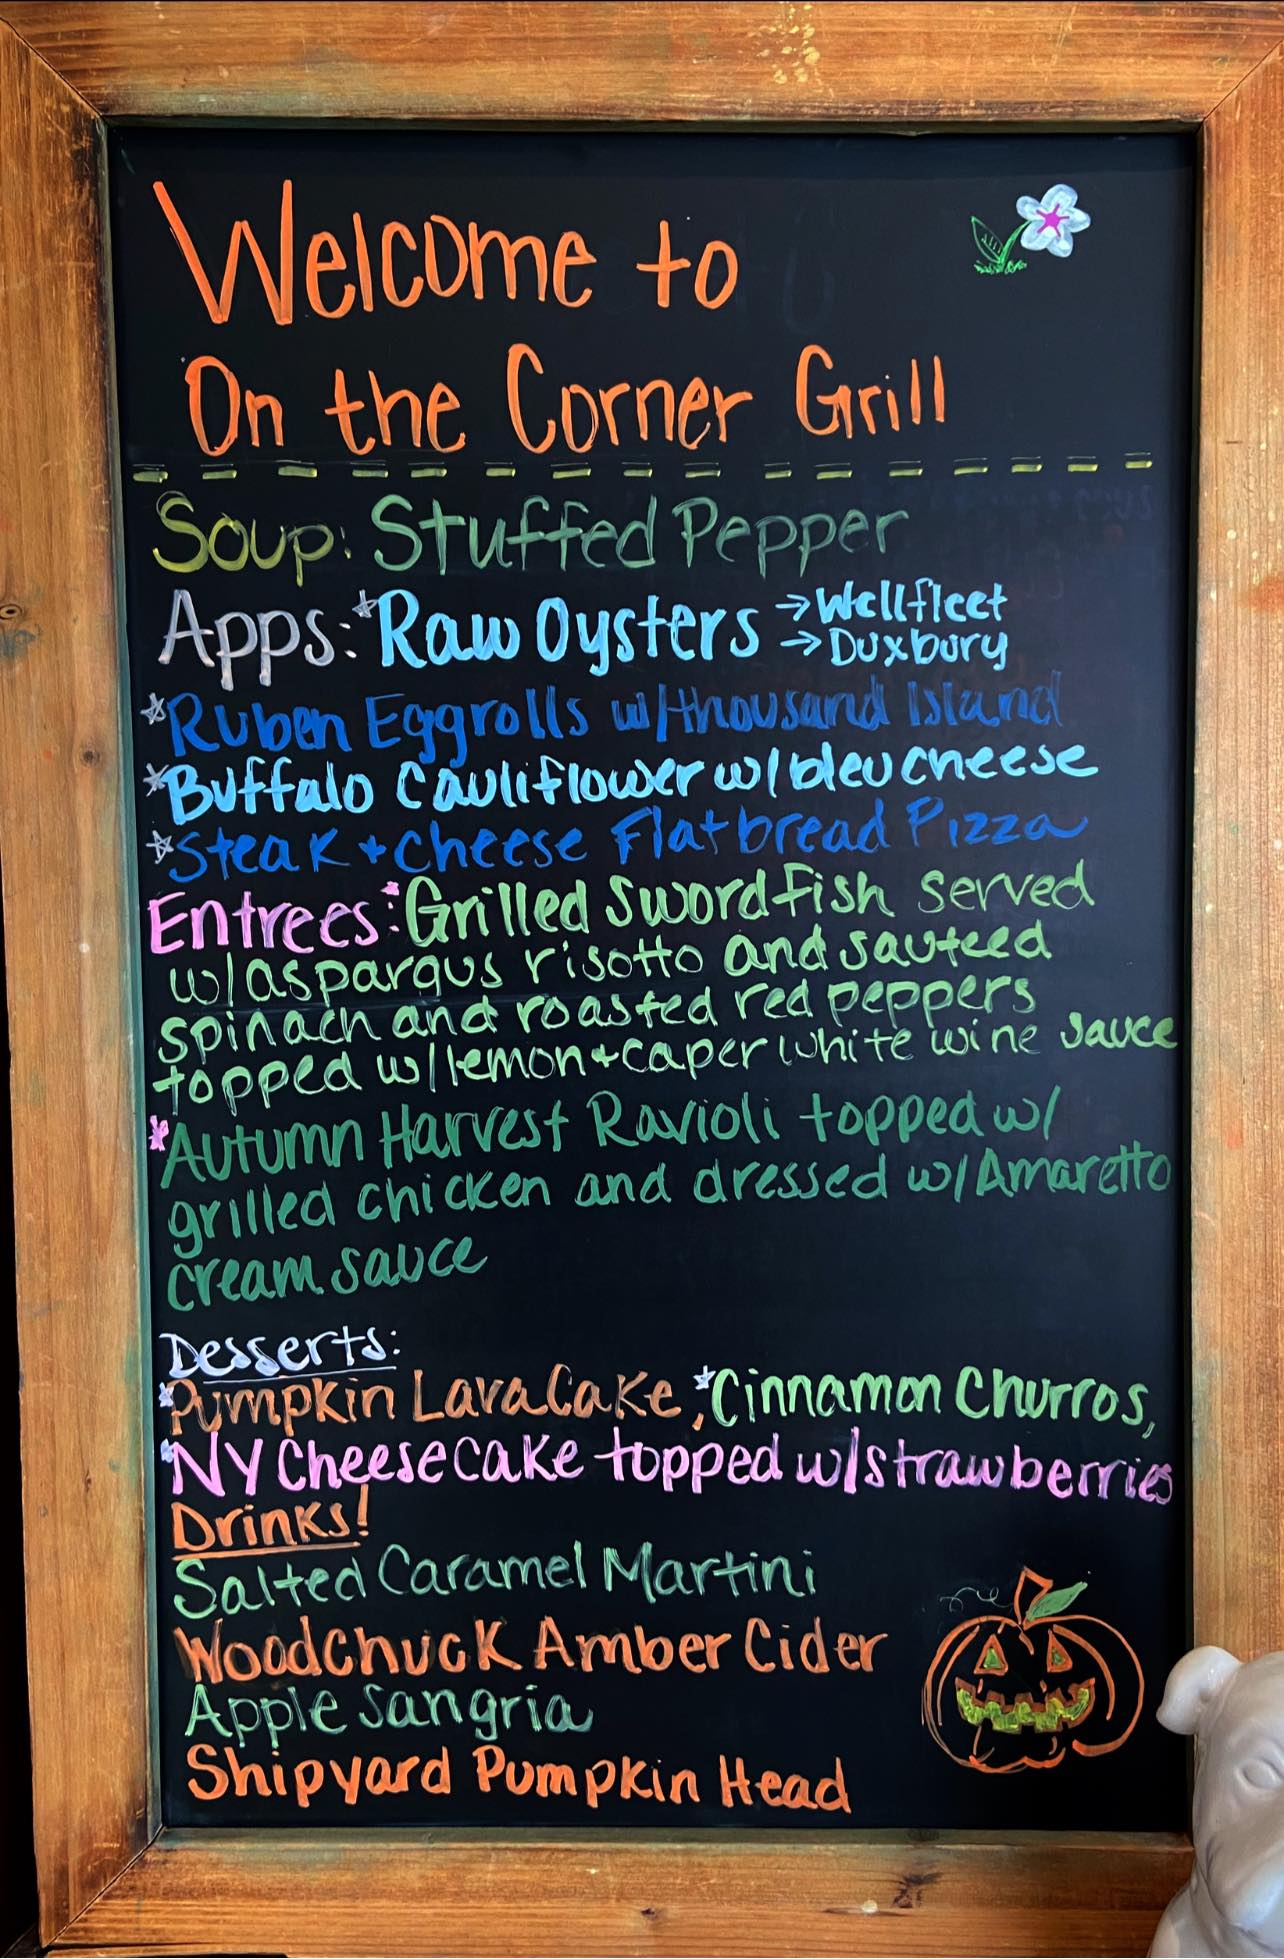 Welcome to
On the Corner Grill
Soup: Stuffed Pepper
Apps: *Raw Oysters → Wellfleet
→ Duxbury
*Ruben Eggrolls w/thousand Island
*Buffalo Cauliflower w/bleu cheese
*Steak + cheese Flatbread Pizza
Entrees: *Grilled Swordfish served
w/asparagus risotto and sauteed
spinach and roasted red peppers
topped w/lemon + caper white wine sauce
*Autumn Harvest Ravioli topped w/
grilled chicken and dressed w/Amaretto
cream sauce
Desserts:
*Pumpkin Lava Cake, *Cinnamon Churros,
*NY Cheesecake topped w/strawberries
Drinks!
Salted Caramel Martini
Woodchuck Amber Cider
Apple Sangria
Shipyard Pumpkin Head